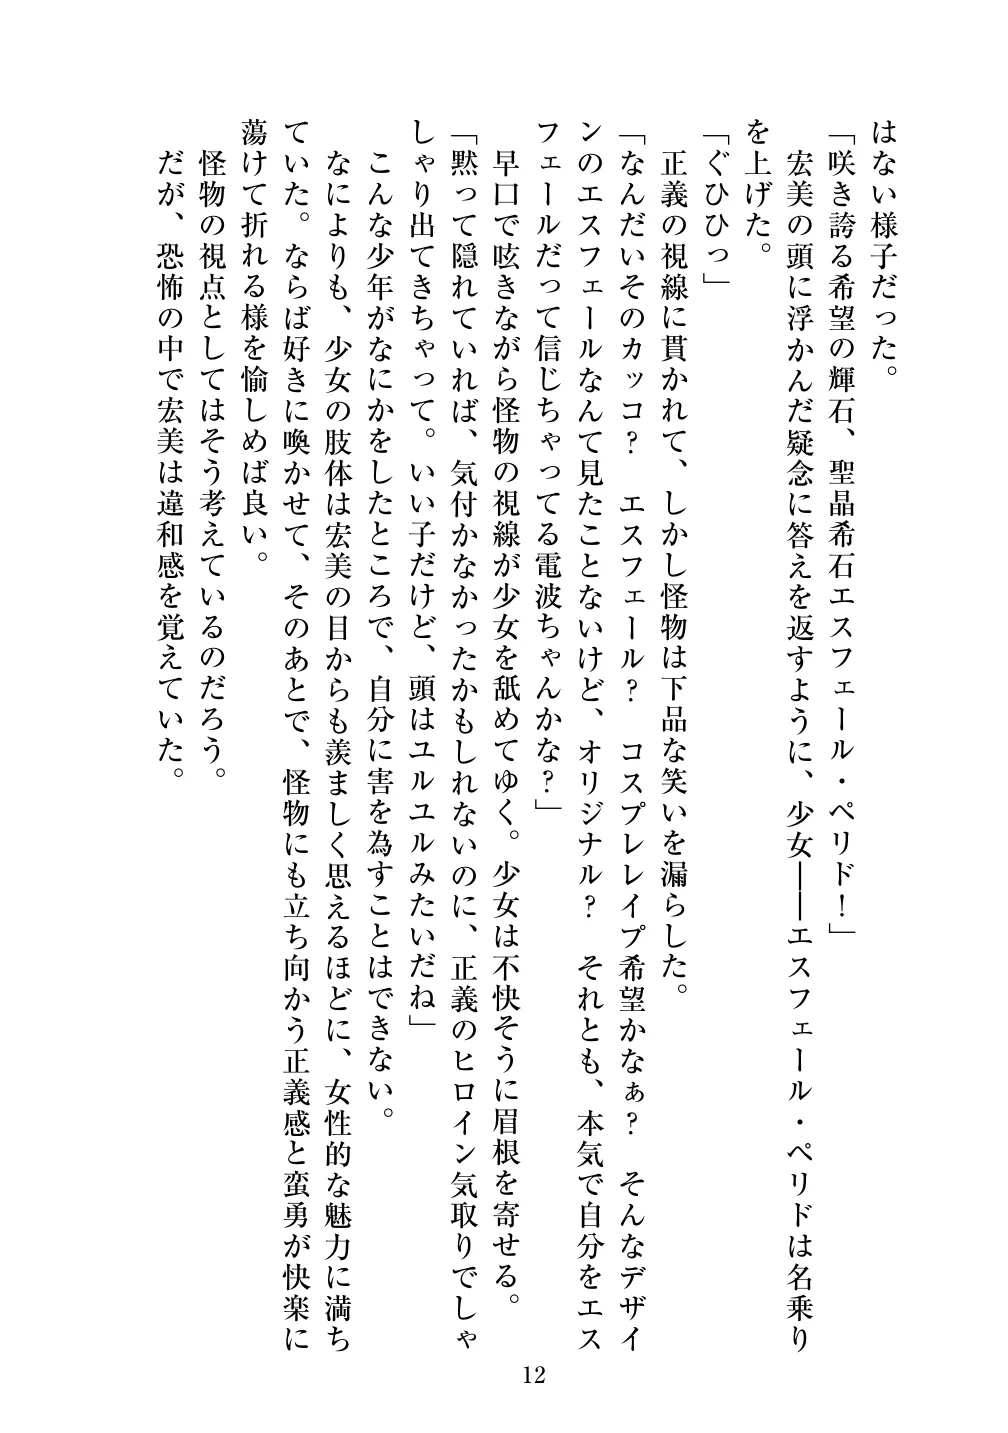 はない様子だった。
「咲き誇る希望の輝石、聖晶希石エスフェール・ペリド！」
　宏美の頭に浮かんだ疑念に答えを返すように、少女――エスフェール・ペリドは名乗り
を上げた。
「ぐひひっ」
　正義の視線に貫かれて、しかし怪物は下品な笑いを漏らした。
「なんだいそのカッコ？　エスフェール？　コスプレレイプ希望かなぁ？　そんなデザイ
ンのエスフェールなんて見たことないけど、オリジナル？　それとも、本気で自分をエス
フェールだって信じちゃってる電波ちゃんかな？」
　早口で呟きながら怪物の視線が少女を舐めてゆく。少女は不快そうに眉根を寄せる。
「黙って隠れていれば、気付かなかったかもしれないのに、正義のヒロイン気取りでしゃ
しゃり出てきちゃって。いい子だけど、頭はユルユルみたいだね」
　こんな少年がなにかをしたところで、自分に害を為すことはできない。
　なによりも、少女の肢体は宏美の目からも羨ましく思えるほどに、女性的な魅力に満ち
ていた。ならば好きに喚かせて、そのあとで、怪物にも立ち向かう正義感と蛮勇が快楽に
蕩けて折れる様を愉しめば良い。
　怪物の視点としてはそう考えているのだろう。
　だが、恐怖の中で宏美は違和感を覚えていた。
12